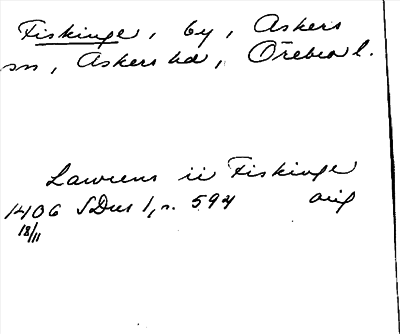 Fiskinge, by, Askers
sn, Askers hd, Örebro l.
Lawrens ii Fiskinge
1406 SDns 1, n. 594 orig
18/11